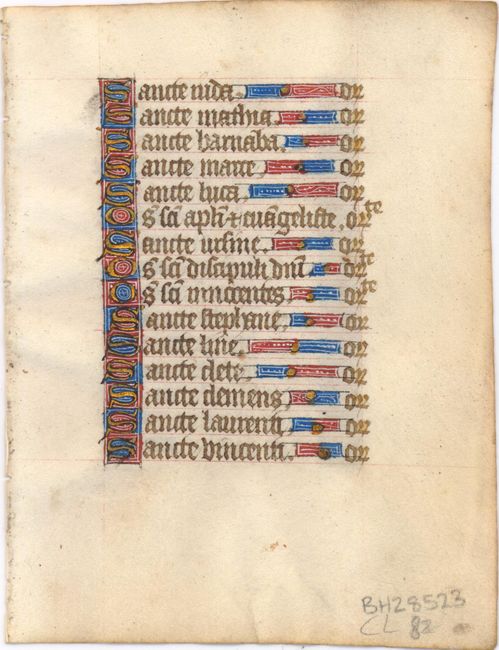 Sancte iuda. or
Sancte mathia. or
Sancte barnaba. or
Sancte marce. or
Sancte luca. or
Os sci apli & euangeliste. orte
Sancte ursine. or
Os sci discipuli dni. orte
Os sci innocentes. orte
Sancte stephane. or
Sancte line. or
Sancte clete. or
Sancte clemens. or
Sancte laurenti. or
Sancte vincenti. or
BH28523
CL 82